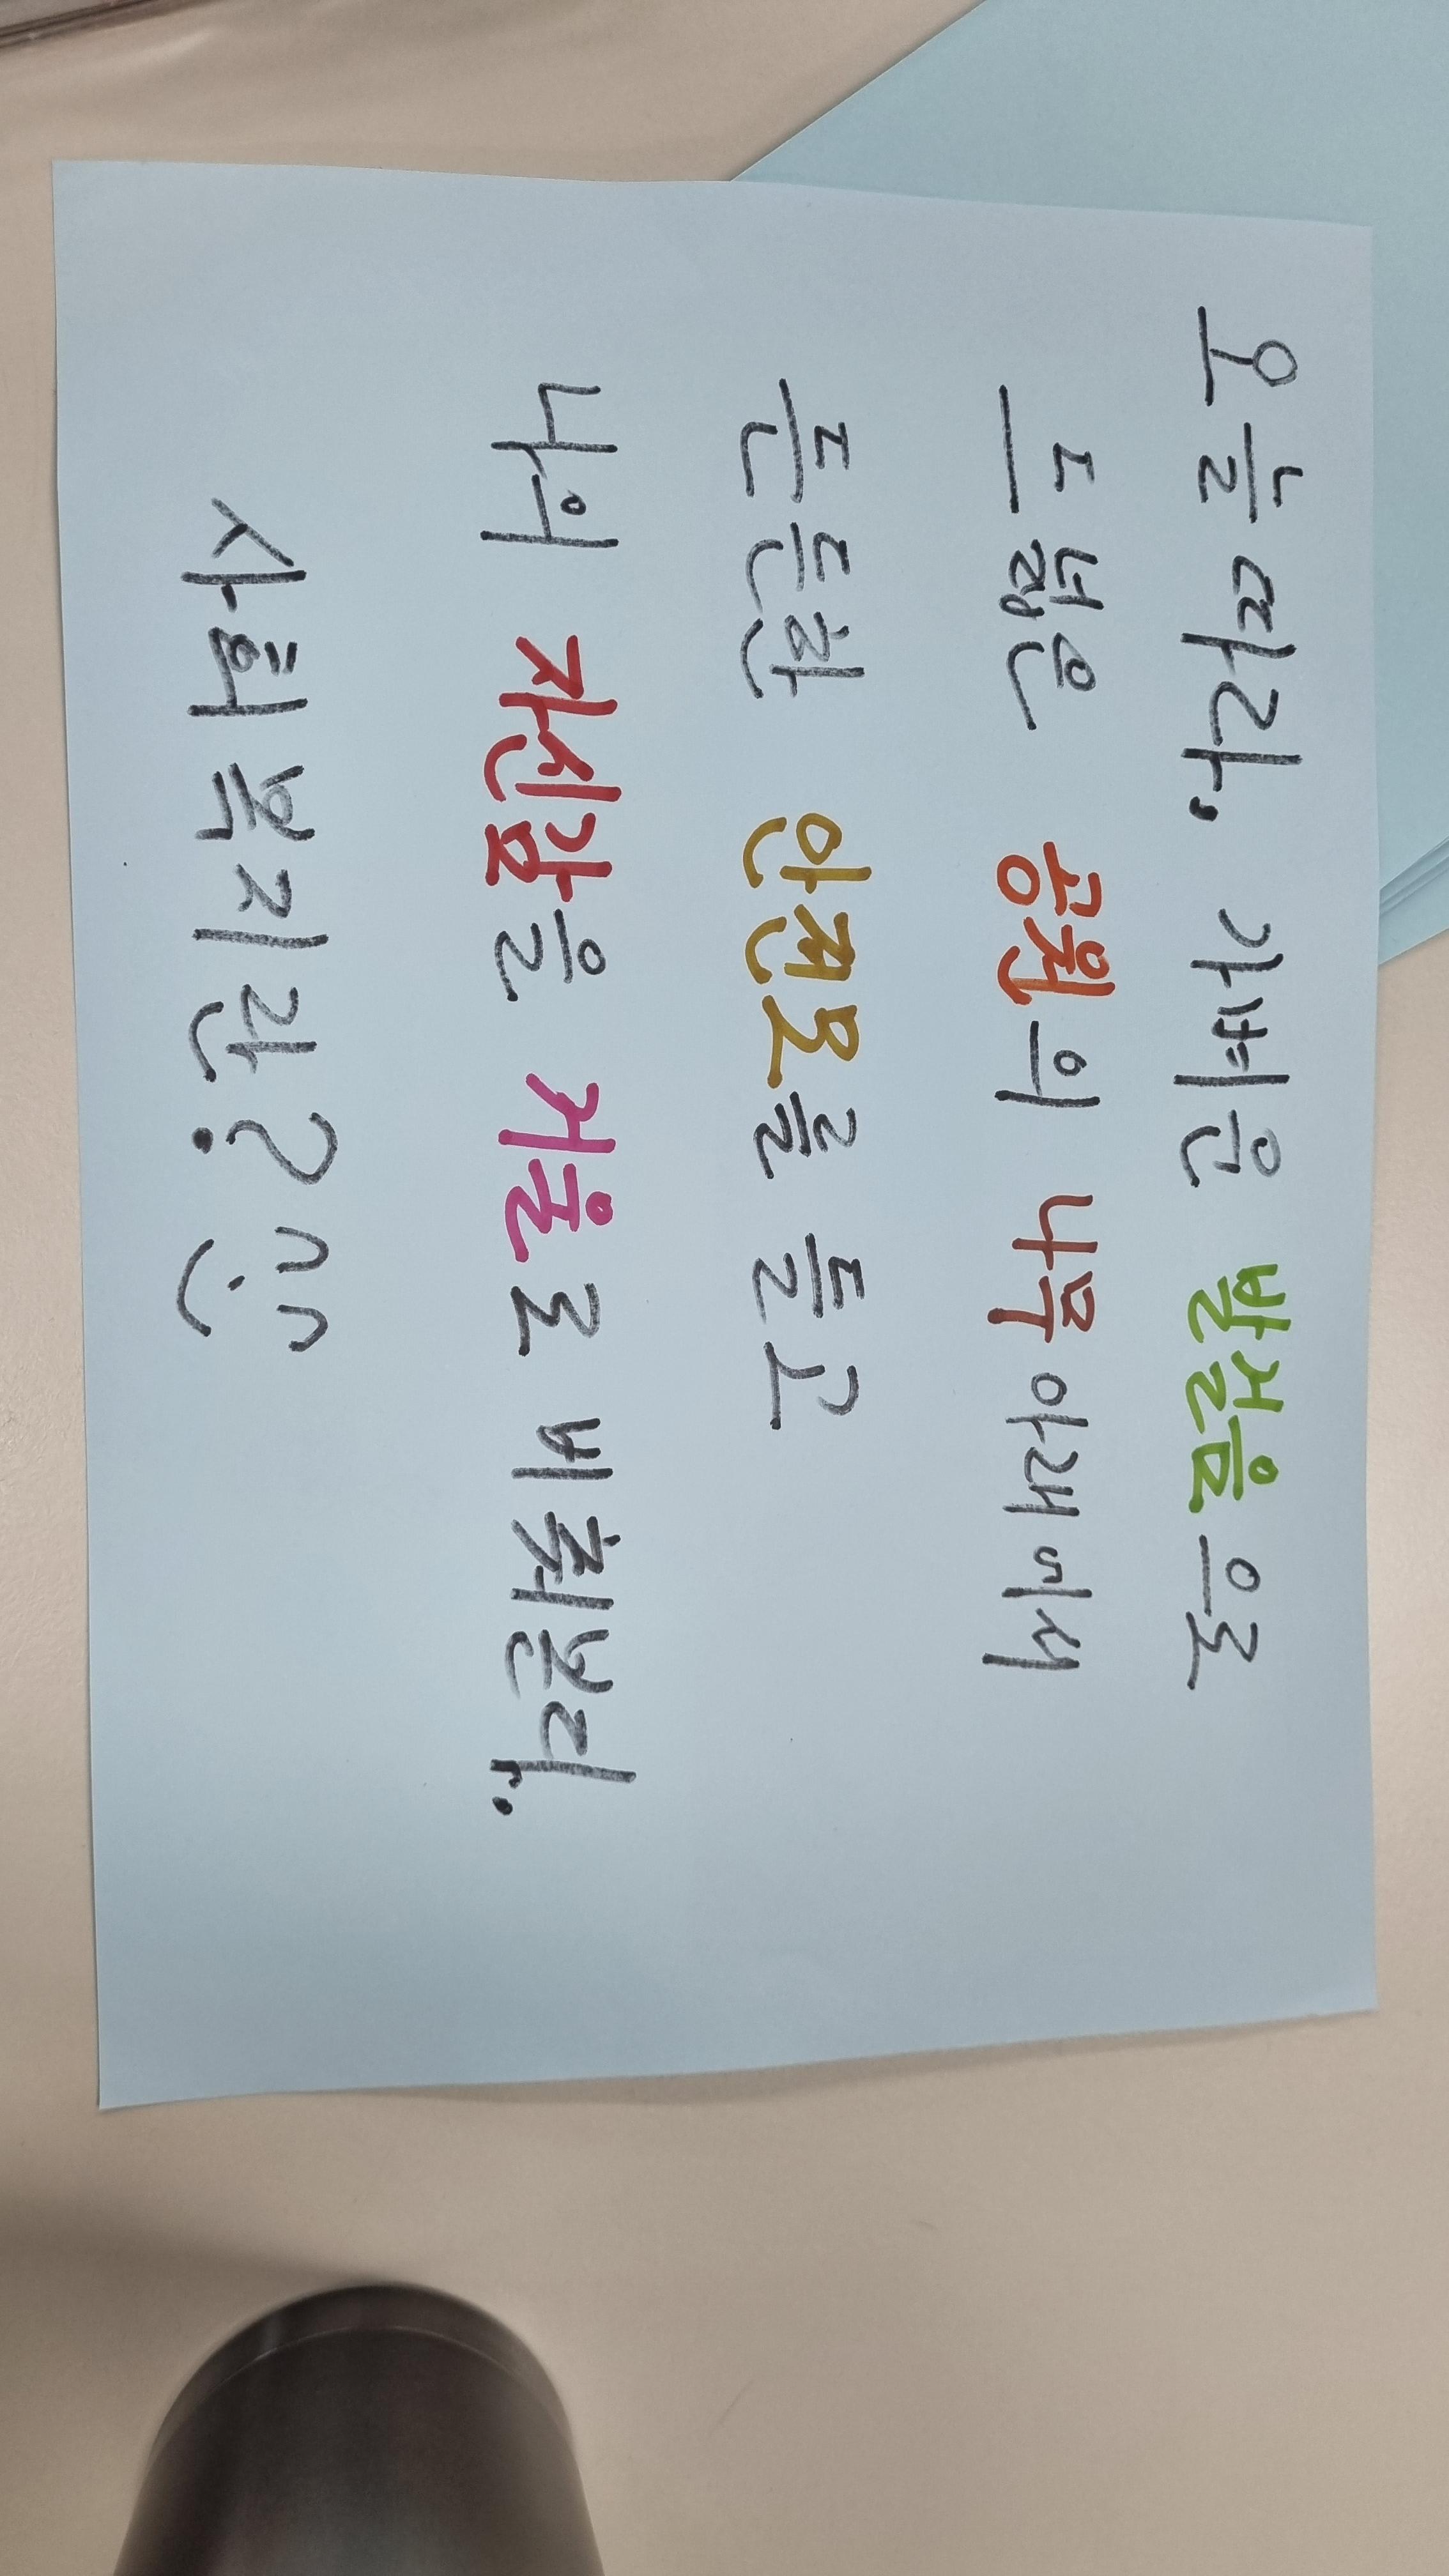 오늘따라. 가벼운 발걸음으로
드넓은 공원의 나무아래에서
튼튼한 안전모를 들고
나의 자신감을 거울로 비춰본다.
사회복지란?